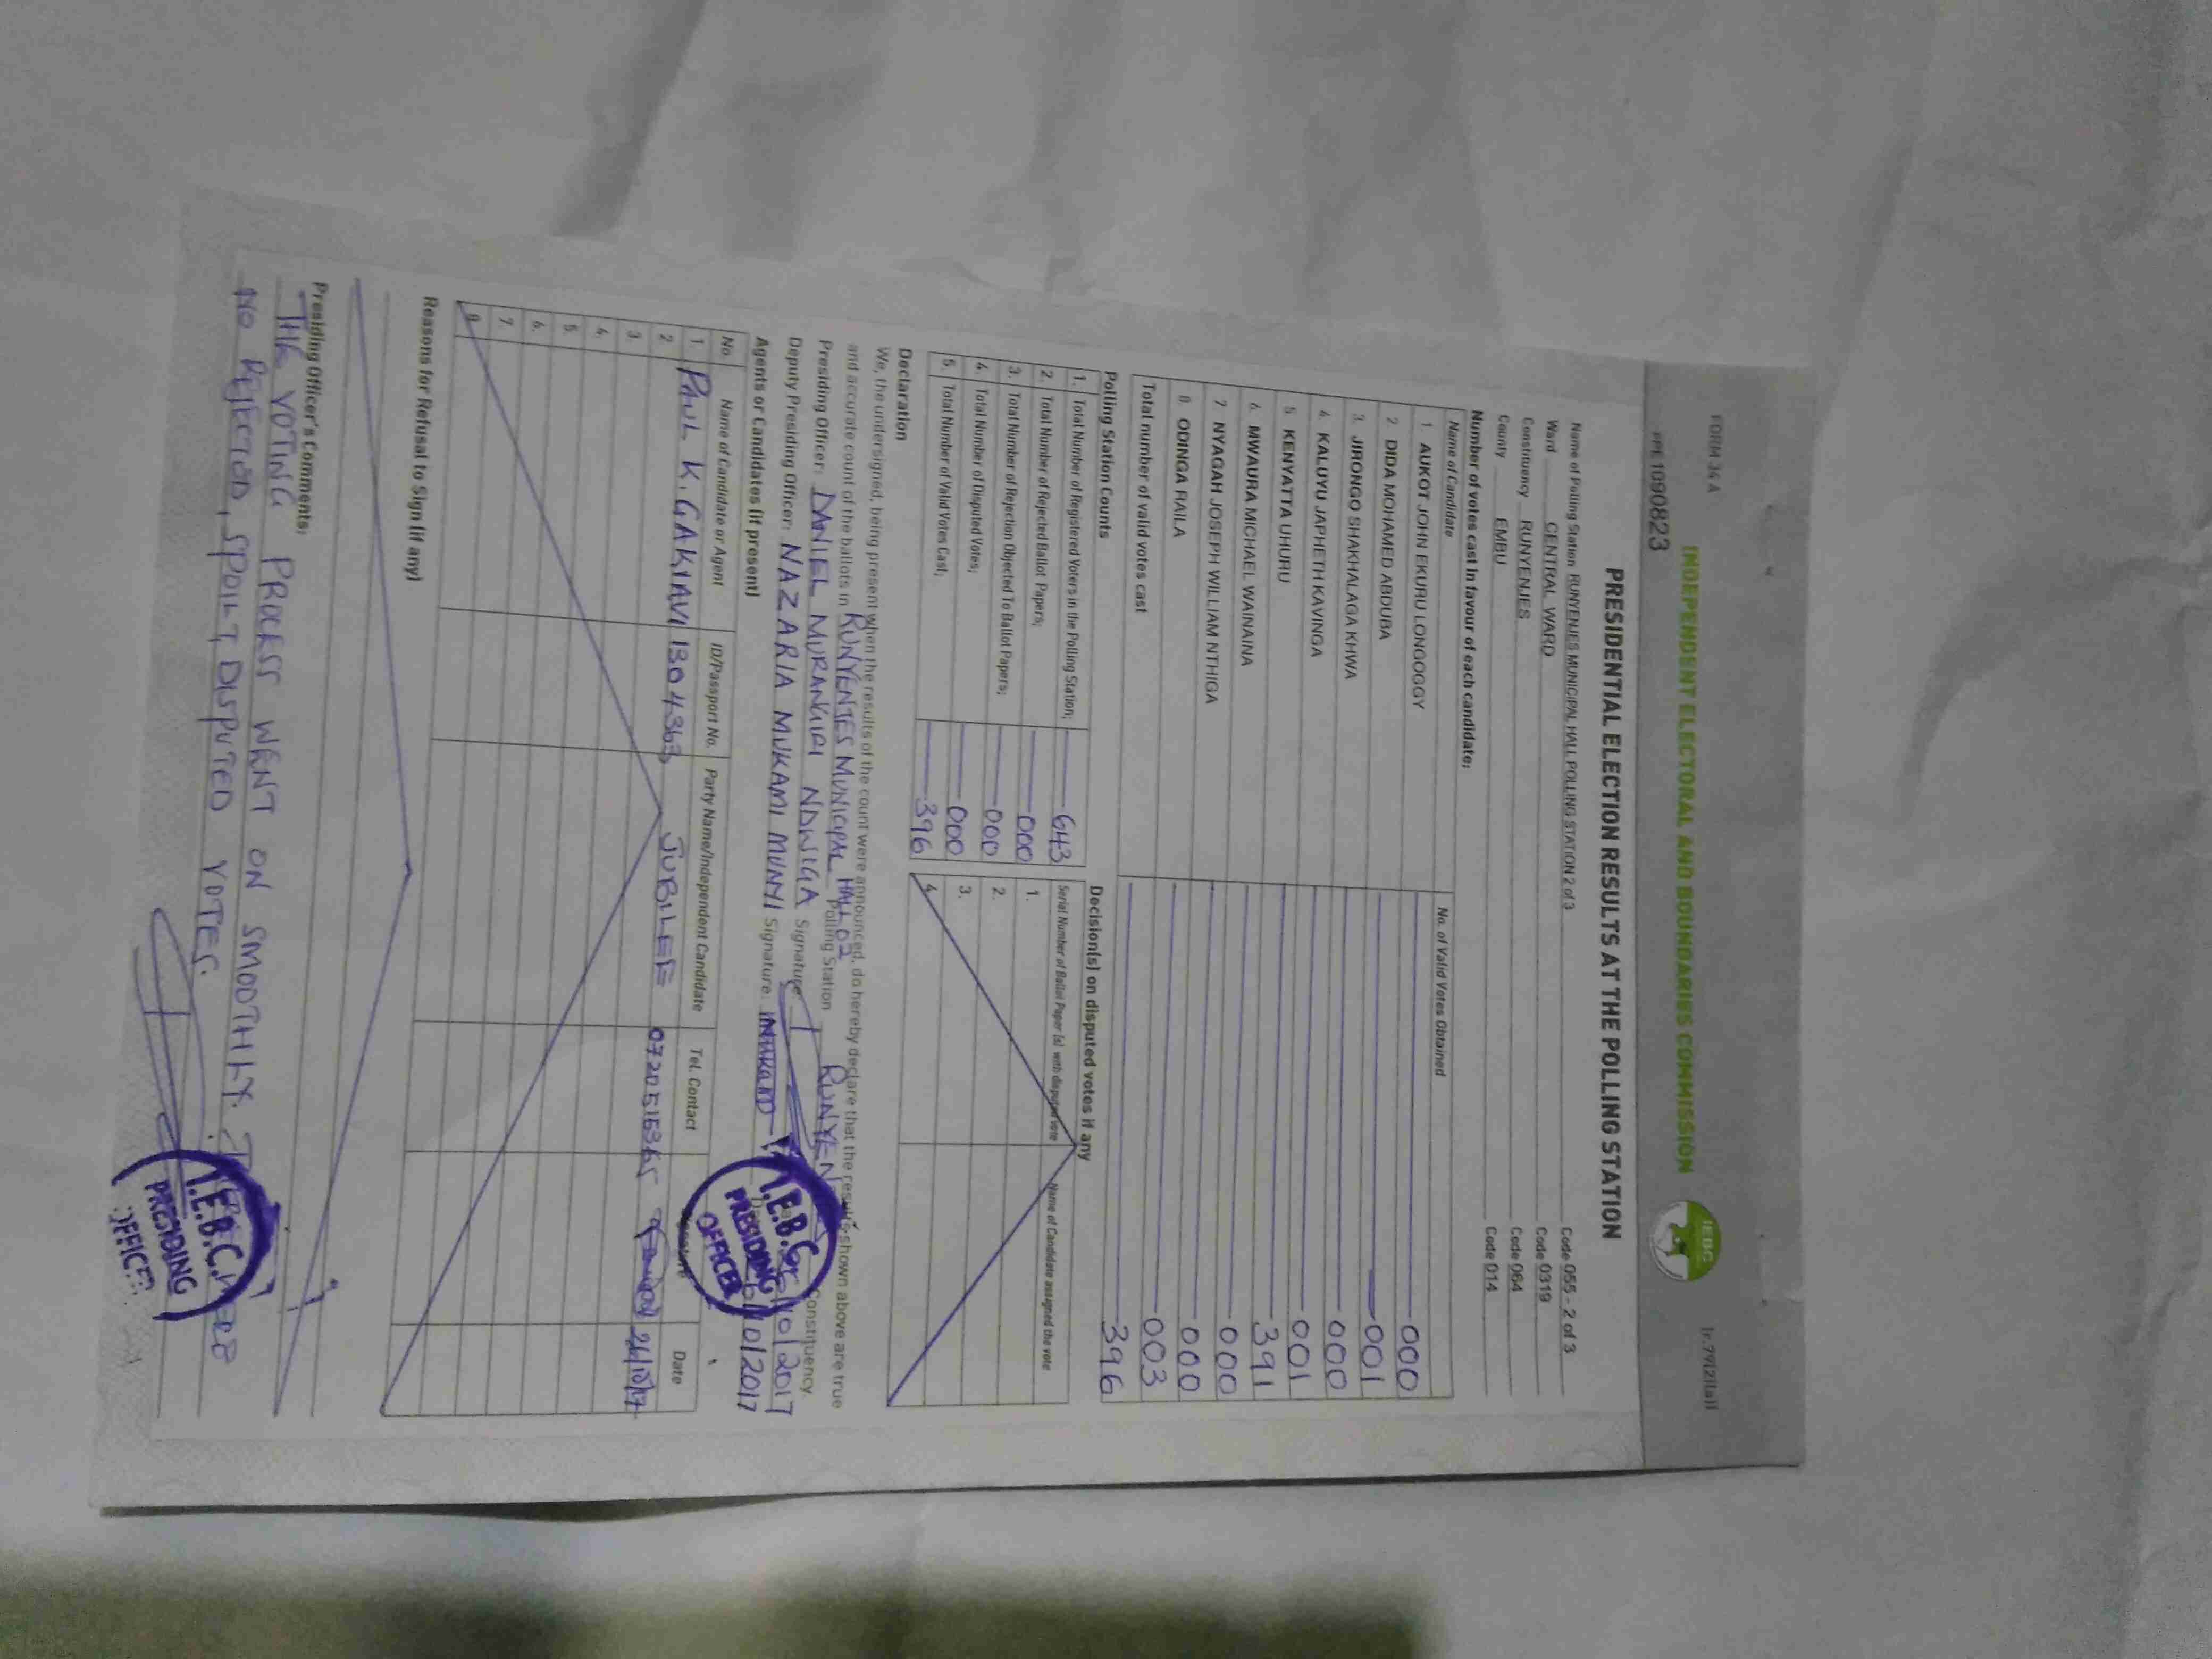 FORM 34 A Ir.79(2)(a)]
INDEPENDENT ELECTORAL AND BOUNDARIES COMMISSION IEBC
PPE 1090823
PRESIDENTIAL ELECTION RESULTS AT THE POLLING STATION
Name of Polling Station RUNYENJES MUNICIPAL HALL POLLING STATION 2 of 3 Code 055 - 2 of 3
Ward CENTRAL WARD Code 0319
Constituency RUNYENJES Code 064
County EMBU Code 014
Number of votes cast in favour of each candidate;
Name of Candidate No. of Valid Votes Obtained
1. AUKOT JOHN EKURU LONGOGGY 000
2. DIDA MOHAMED ABDUBA 001
3. JIRONGO SHAKHALAGA KHWA 000
4. KALUYU JAPHETH KAVINGA 001
5. KENYATTA UHURU 391
6. MWAURA MICHAEL WAINAINA 000
7. NYAGAH JOSEPH WILLIAM NTHIGA 000
8. ODINGA RAILA 003
Total number of valid votes cast 396
Polling Station Counts
1. Total Number of Registered Voters in the Polling Station; 643
2. Total Number of Rejected Ballot Papers; 000
3. Total Number of Rejection Objected To Ballot Papers; 000
4. Total Number of Disputed Votes; 000
5. Total Number of Valid Votes Cast; 396
Decision(s) on disputed votes if any
Serial Number of Ballot Paper (s) with disputed vote Name of Candidate assigned the vote
1.
2.
3.
4.
Declaration
We, the undersigned, being present when the results of the count were announced, do hereby declare that the results shown above are true
and accurate count of the ballots in RUNYENJES MUNICIPAL HALL 02 Polling Station Constituency
Presiding Officer: DANIEL MURANGIRI NDWIGA Signature 10/2017
Deputy Presiding Officer: NAZARIA MUKAMI MUNYI Signature 10/2017
I.E.B.C. PRESIDING OFFICER
Agents or Candidates (if present)
No. Name of Candidate or Agent ID/Passport No. Party Name/Independent Candidate Tel. Contact Signature Date
1. PAUL K. GAKIAVI 1304363 JUBILEE 26/10/17
2.
3.
4.
5.
6.
7.
8.
Reasons for Refusal to Sign (if any)
Presiding Officer's Comments;
THE VOTING PROCESS WENT ON SMOOTHLY.
NO REJECTED, SPOILT, DISPUTED VOTES.
I.E.B.C. PRESIDING OFFICER